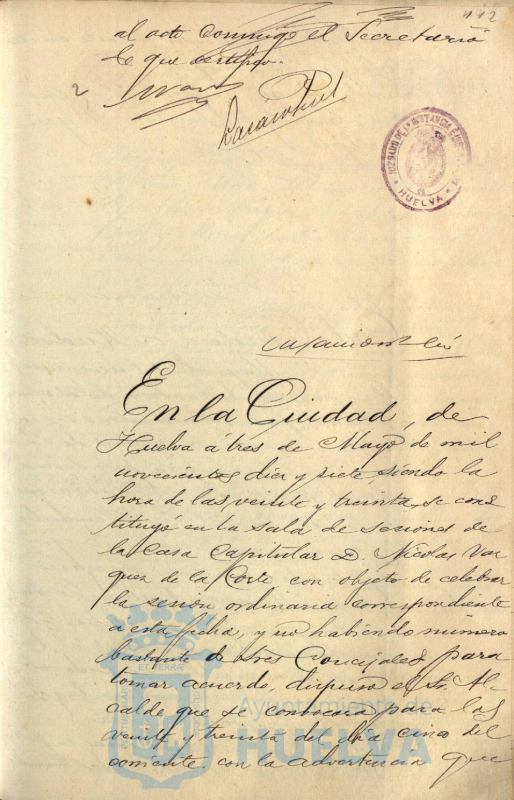 112
al acto conmigo el Secretario
de que certifico.
2
JUZGADO DE 1ª INSTANCIA E INSTRUCCION
HUELVA
En la Ciudad, de
Huelva á tres de Mayo de mil
novecientos diez y siete, siendo la
hora de las veinte y treinta, se cons
tituyo en la sala de sesiones de
la Casa Capitular D. Nicolas Vaz
quez de la Corte con objeto de celebrar
la sesión ordinaria correspondiente
a esta fecha, y no habiendo número
bastante de Sres Concejales para
tomar acuerdo, dispuso el Sr. Al
calde que se convocara para las
veinte y treinta del día cinco del
corriente con la advertencia que
Ayuntamiento de
HUELVA